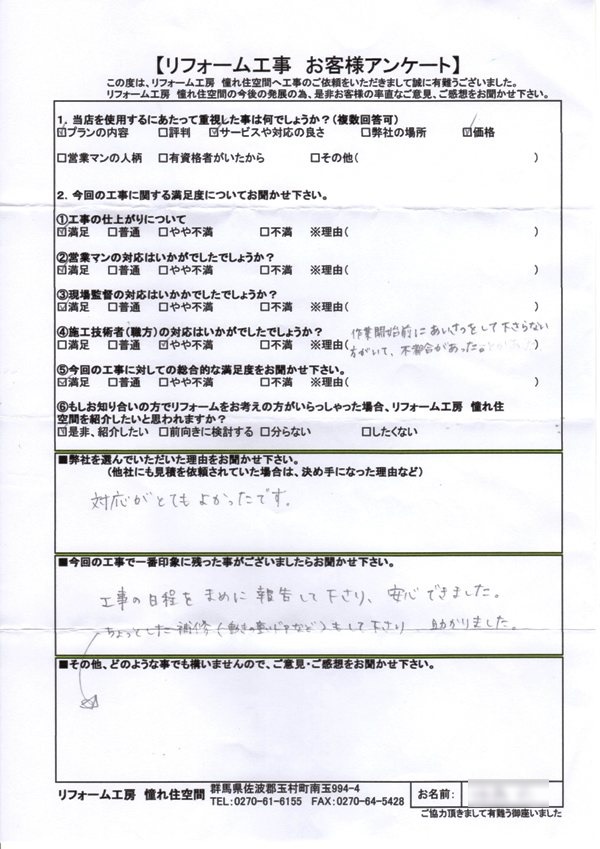 【リフォーム工事　お客様アンケート】
この度は、リフォーム工房　憧れ住空間へ工事のご依頼をいただきまして誠に有難うございました。
リフォーム工房　憧れ住空間の今後の発展の為、是非お客様の率直なご意見、ご感想をお聞かせ下さい。
1．当店を使用するにあたって重視した事は何でしょうか？（複数回答可）
☑プランの内容　□評判　☑サービスや対応の良さ　□弊社の場所　☑価格
□営業マンの人柄　□有資格者がいたから　□その他（　　　）
2．今回の工事に関する満足度についてお聞かせ下さい。
①工事の仕上がりについて
☑満足　□普通　□やや不満　□不満　※理由（　　　）
②営業マンの対応はいかがでしたでしょうか？
☑満足　□普通　□やや不満　□不満　※理由（　　　）
③現場監督の対応はいかかでしたでしょうか？
☑満足　□普通　□やや不満　□不満　※理由（　　　）
④施工技術者（職方）の対応はいかがでしたでしょうか？
□満足　□普通　☑やや不満　□不満　※理由（作業開始前にあいさつをして下さらない
方がいて、不都合があった。）
⑤今回の工事に対しての総合的な満足度をお聞かせ下さい。
☑満足　□普通　□やや不満　□不満　※理由（　　　）
⑥もしお知り合いの方でリフォームをお考えの方がいらっしゃった場合、リフォーム工房　憧れ住
空間を紹介したいと思われますか？
☑是非、紹介したい　□前向きに検討する　□分らない　□したくない
■弊社を選んでいただいた理由をお聞かせ下さい。
（他社にも見積を依頼されていた場合は、決め手になった理由など）
対応がとてもよかったです。
■今回の工事で一番印象に残った事がございましたらお聞かせ下さい。
工事の日程をまめに報告して下さり、安心できました。
ちょっとした補修（動きの重いドアなど）もして下さり、助かりました。
■その他、どのような事でも構いませんので、ご意見・ご感想をお聞かせ下さい。
リフォーム工房　憧れ住空間
群馬県佐波郡玉村町南玉994-4
TEL：0270-61-6155　FAX：0270-64-5428
お名前：
ご協力頂きまして有難う御座いました